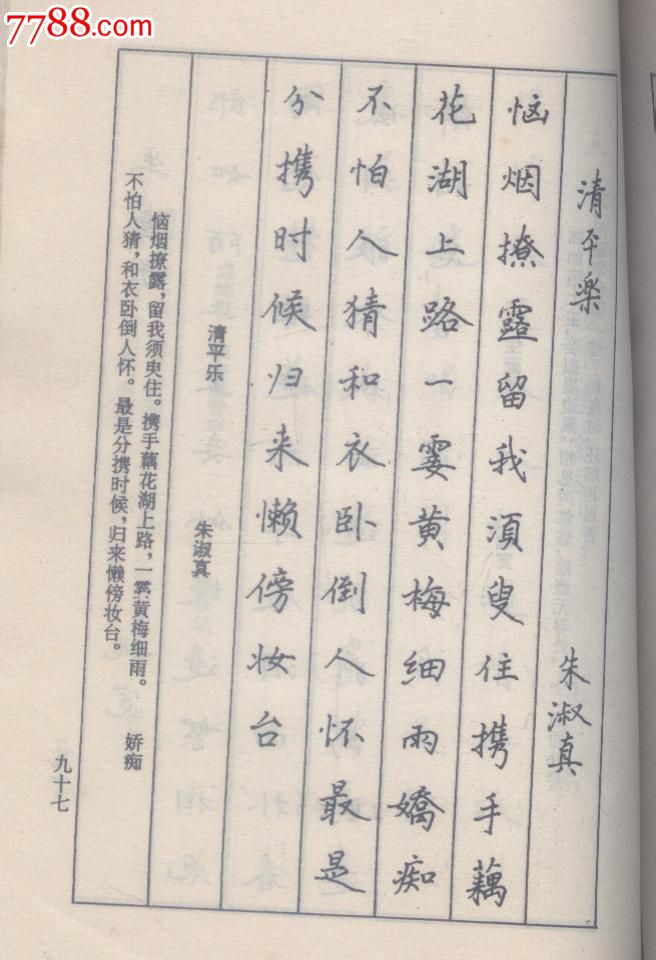 7788.com
清平樂 朱淑真
恼烟撩露留我須臾住携手藕
花湖上路一霎黄梅细雨嬌痴
不怕人猜和衣卧倒人怀最是
分携时候归来懒傍妆台
清平乐 朱淑真
恼烟撩露,留我须臾住。携手藕花湖上路,一霎黄梅细雨。 娇痴
不怕人猜,和衣卧倒人怀。最是分携时候,归来懒傍妆台。
九十七